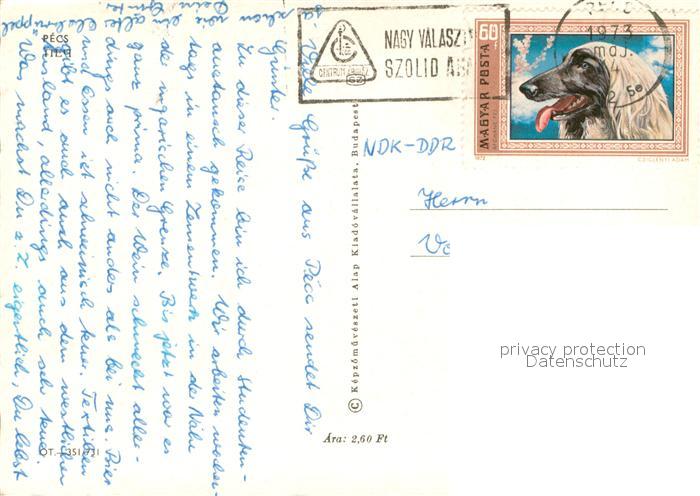 PÉCS
NAGY VÁLASZ
SZOLID
CENTRUM
1973
MÁJ.
60 f
MAGYAR POSTA
1972
CZIGLÉNYI ÁDÁM
NDK-DDR
Herrn
privacy protection
Datenschutz
© Képzőművészeti Alap Kiadóvállalata, Budapest
Ára: 2,60 Ft
OT.—351/731
Grüße aus Pécs sendet Dir
Günter.
Zu dieser Reise bin ich durch Studenten-
austausch gekommen. Wir arbeiten wochen-
tags in einem Zementwerk in der Nähe
der Grenze. Bis jetzt war es
ganz prima. Der Wein schmeckt aller-
dings auch nicht anders als bei uns. Bier
und Essen ist schweinisch teuer. Textilien
gibt es auch auch aus dem westlichen
Ausland, allerdings auch sehr teuer.
Was machst Du z. Z. eigentlich, Du lebst